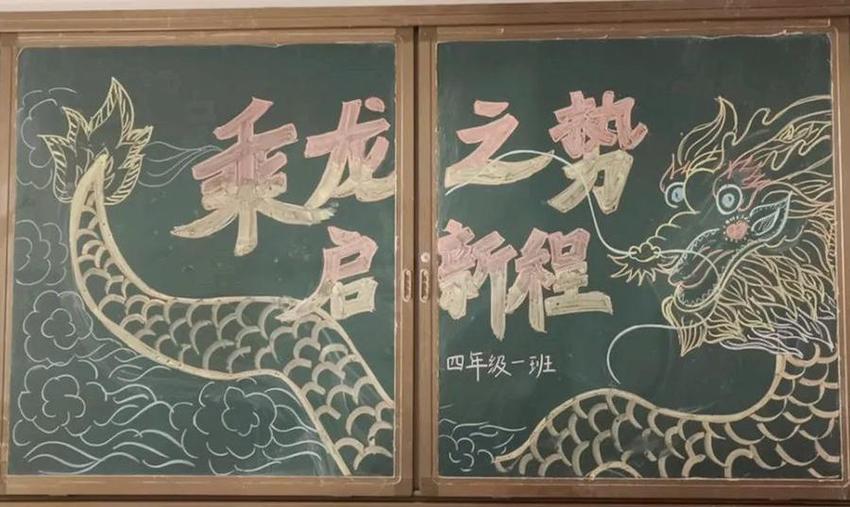 乘龙之势
启新程
四年级一班